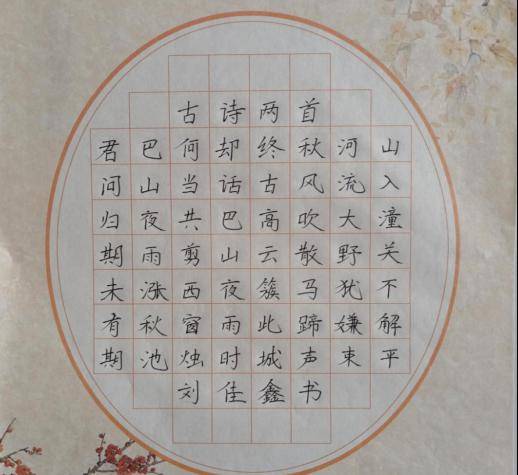 古诗两首
君问归期未有期
巴山夜雨涨秋池
何当共剪西窗烛
却话巴山夜雨时
终古高云簇此城
秋风吹散马蹄声
河流大野犹嫌束
山入潼关不解平
刘佳鑫书